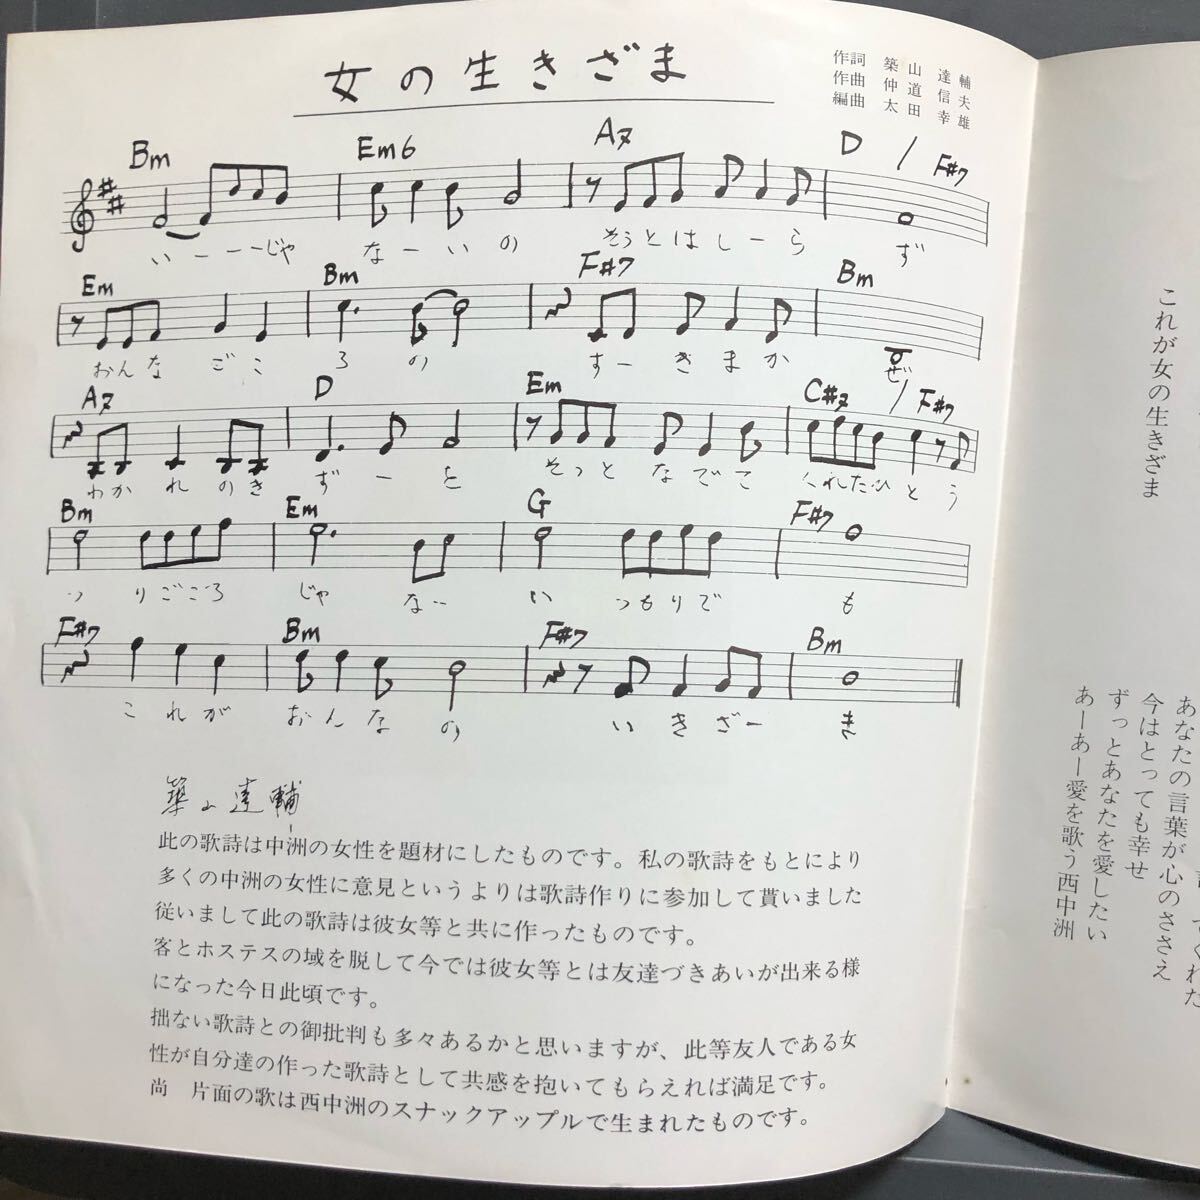 女の生きざま
作詞 築山達輔
作曲 仲道信夫
編曲 太田幸雄
Bm Em6 A7 D / F#7
いーーーじゃ なーいの そうとはしーら ず
Em Bm F#7 Bm
おんなごこ ろの すーきまか ぜ
A7 D Em C#7 / F#7
わかれのき ずーと そっとなでて くれたひとう
Bm Em G F#7
つりごころ じゃなー いつもりで も
F#7 Bm F#7 Bm
これが おんなの いきざー き
築山達輔
此の歌詩は中洲の女性を題材にしたものです。私の歌詩をもとにより
多くの中洲の女性に意見というよりは歌詩作りに参加して貰いました
従いまして此の歌詩は彼女等と共に作ったものです。
客とホステスの域を脱して今では彼女等とは友達づきあいが出来る様
になった今日此頃です。
拙ない歌詩との御批判も多々あるかと思いますが、此等友人である女
性が自分達の作った歌詩として共感を抱いてもらえれば満足です。
尚 片面の歌は西中洲のスナックアップルで生まれたものです。
これが女の生きざま
てくれた
あなたの言葉が心のささえ
今はとっても幸せ
ずっとあなたを愛したい
あーあー愛を歌う西中洲